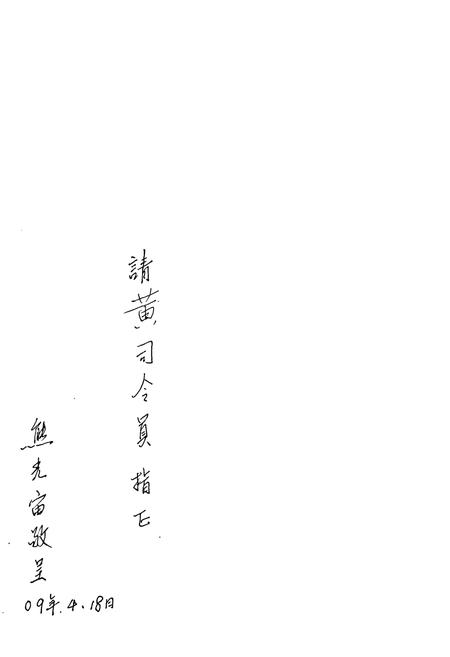 請黃司令員指正
熊光宙敬呈
09年.4.18日